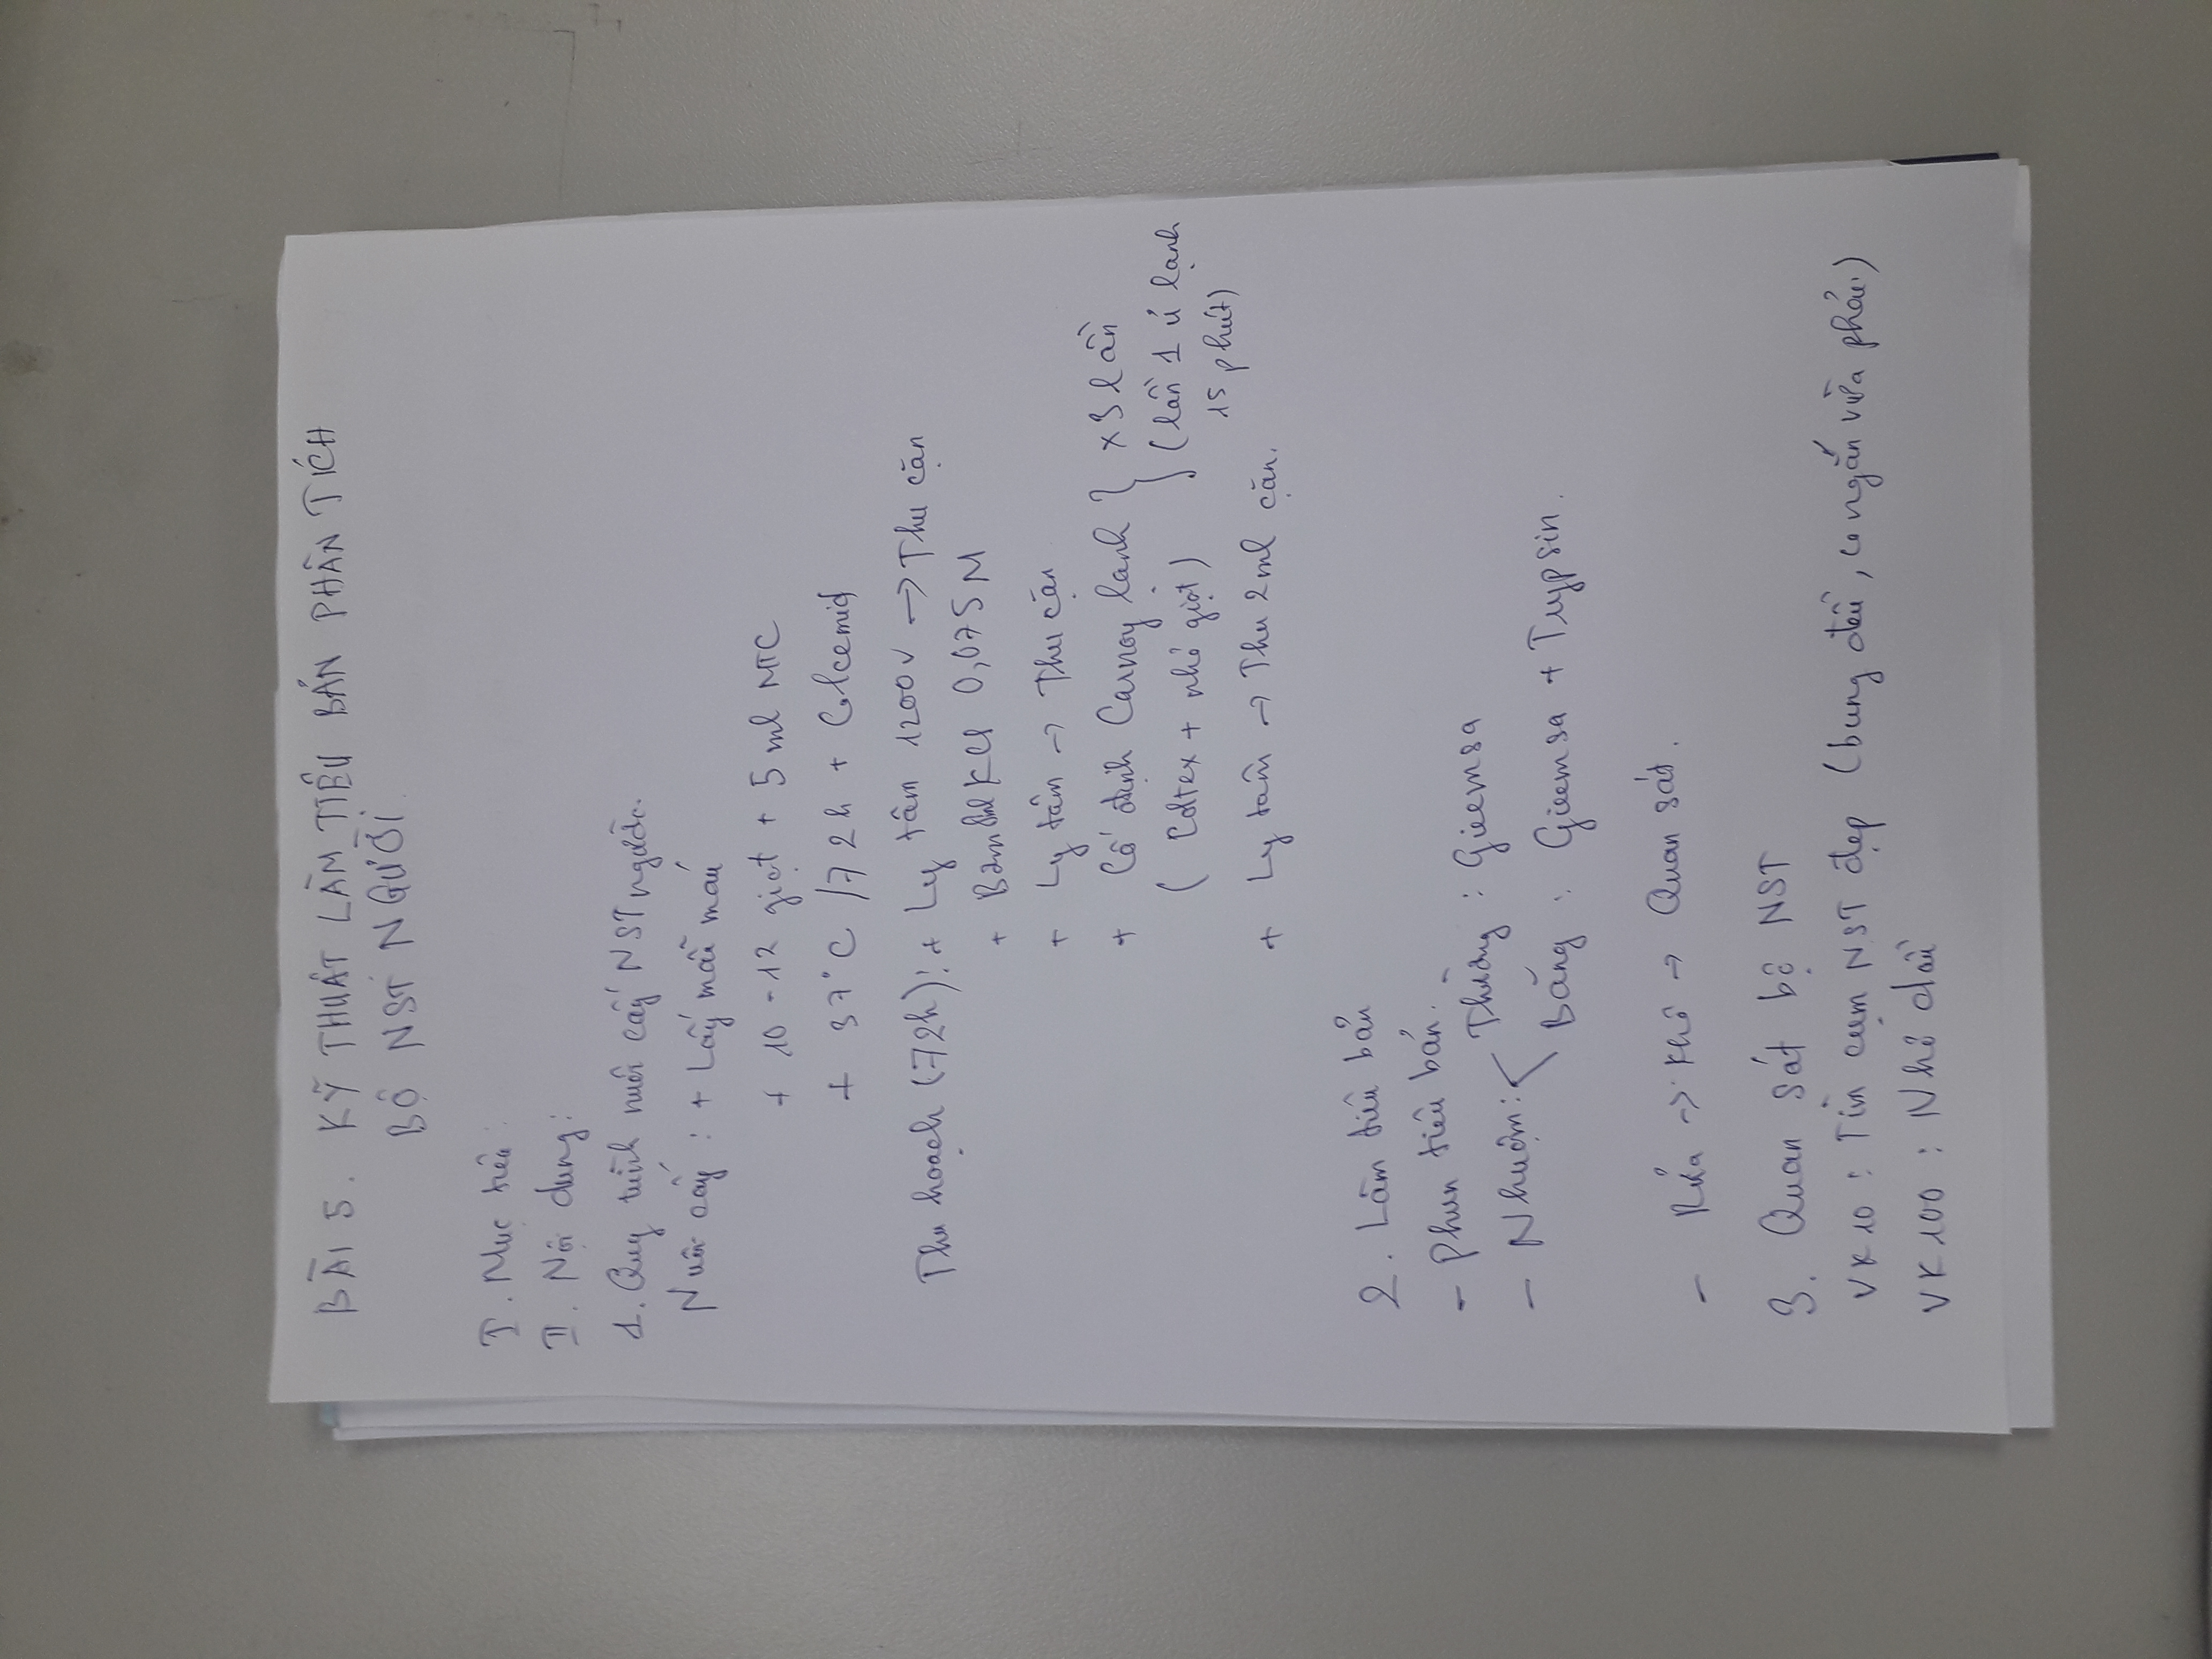 BÀI 5. KỸ THUẬT LÀM TIÊU BẢN PHÂN TÍCH
BỘ NST NGƯỜI
I. Mục tiêu:
II. Nội dung:
1. Quy trình nuôi cấy NST người.
Nuôi cấy: + Lấy mẫu máu
+ 10 - 12 giọt + 5 ml MTC
+ 37°C /72h + Colcemid
Thu hoạch (72h): + Ly tâm 1200v → Thu cặn
+ Bơm KCl 0,075M
+ Ly tâm → Thu cặn
+ Cố định Carnoy lạnh } x3 lần
( + nhỏ giọt) (lần 1 ủ lạnh
15 phút)
+ Ly tâm → Thu 2ml cặn.
2. Làm tiêu bản
- Phun tiêu bản.
- Nhuộm: < Thường : Gieemsa
Băng : Gieemsa + Trypsin.
- Rửa → Khô → Quan sát.
3. Quan sát bộ NST
VK10 : Tìm cụm NST đẹp (bung đều, co ngắn vừa phải)
VK100 : Nhỏ dầu